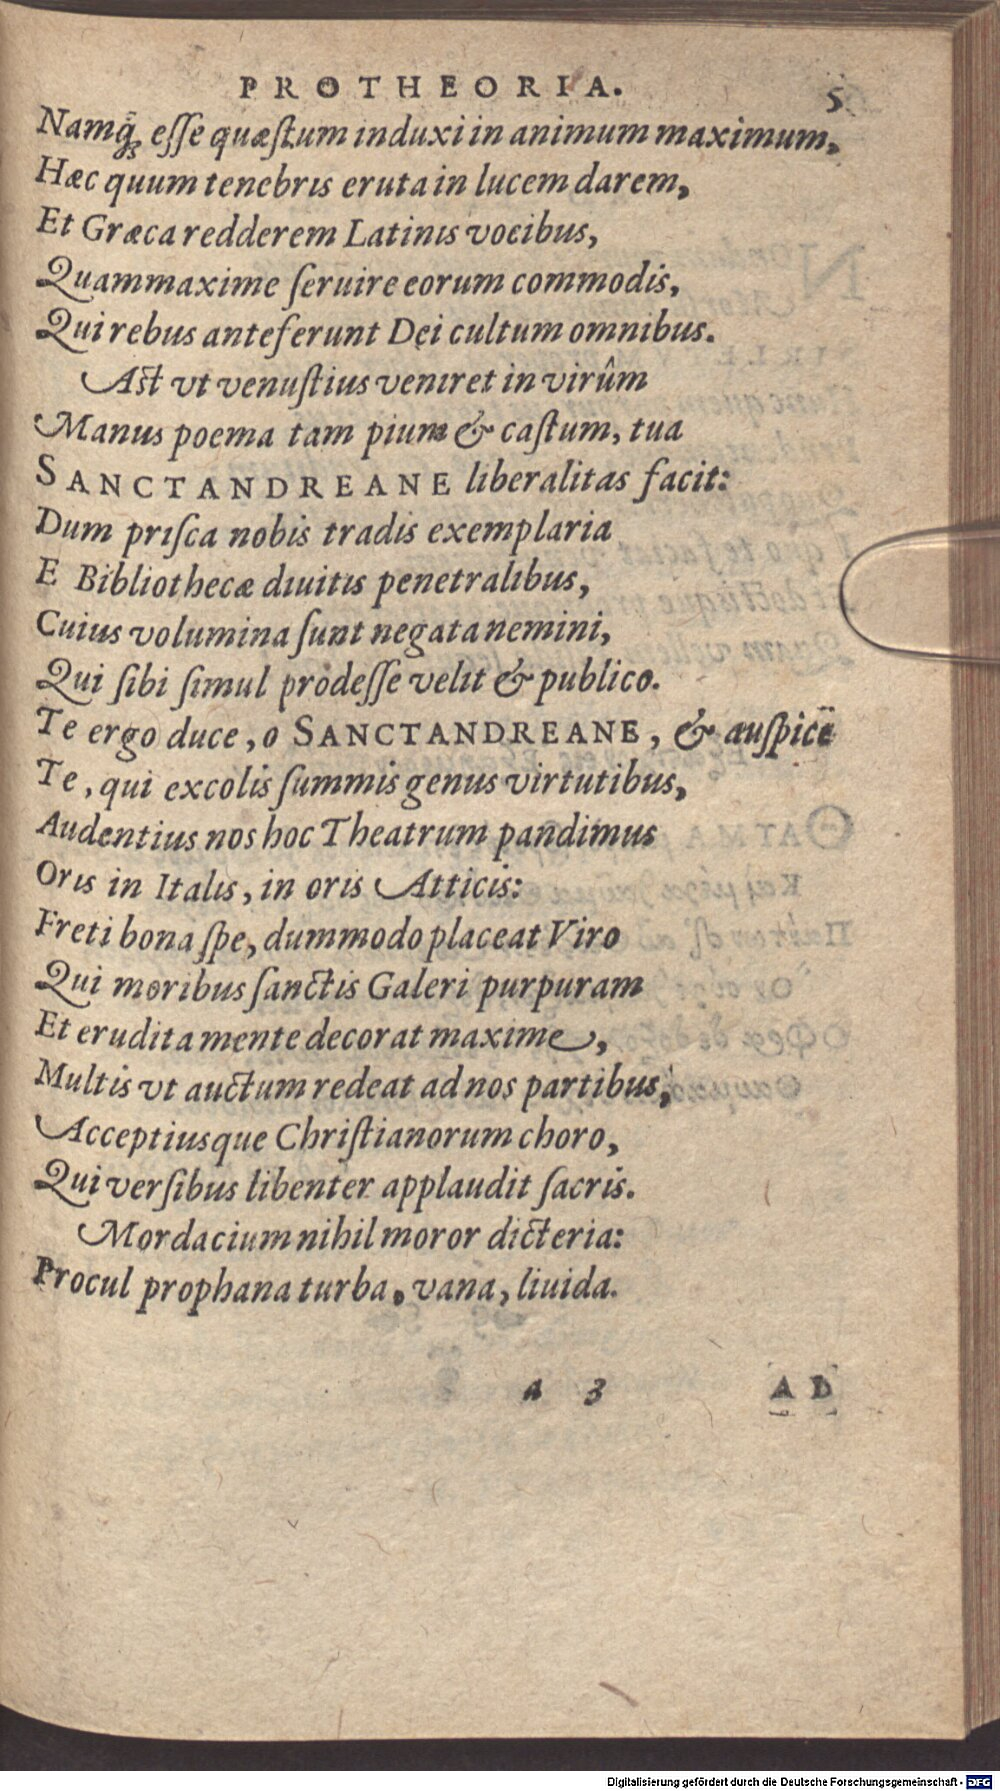 PROTHEORIA. 5
Namq́ꝫ eſſe quæſtum induxi in animum maximum,
Hæc quum tenebris eruta in lucem darem,
Et Græca redderem Latinis vocibus,
Quammaxime ſeruire eorum commodis,
Qui rebus anteferunt Dei cultum omnibus.
Aſt vt venuſtius veniret in virûm
Manus poema tam pium & caſtum, tua
SANCTANDREANE liberalitas facit:
Dum priſca nobis tradis exemplaria
E Bibliothecæ diuitis penetralibus,
Cuius volumina ſunt negata nemini,
Qui ſibi ſimul prodeſſe velit & publico.
Te ergo duce, o SANCTANDREANE, & auſpice
Te, qui excolis ſummis genus virtutibus,
Audentius nos hoc Theatrum pandimus
Oris in Italis, in oris Atticis:
Freti bona ſpe, dummodo placeat Viro
Qui moribus ſanctis Galeri purpuram
Et erudita mente decorat maxime,
Multis vt auctum redeat ad nos partibus,
Acceptiusque Chriſtianorum choro,
Qui verſibus libenter applaudit ſacris.
Mordacium nihil moror dicteria:
Procul prophana turba, vana, liuida.
a 3 AD
Digitalisierung gefördert durch die Deutsche Forschungsgemeinschaft - DFG